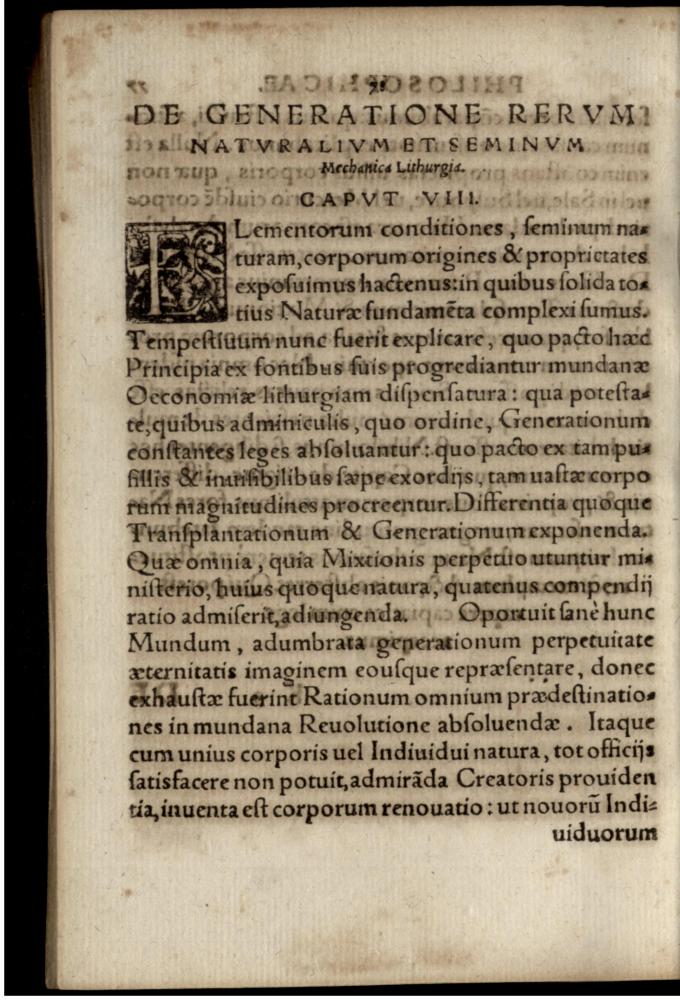 DE GENERATIONE RERVM
NATVRALIVM ET SEMINVM
Mechanica Lithurgia.
CAPVT VIII.
ELementorum conditiones, ſeminum na-
turam, corporum origines & proprietates
expoſuimus hactenus: in quibus ſolida to-
tius Naturæ fundamẽta complexi ſumus.
Tempeſtiuum nunc fuerit explicare, quo pacto hæc
Principia ex fontibus ſuis progrediantur mundanæ
Oeconomiæ lithurgiam diſpenſatura: qua poteſta-
te, quibus adminiculis, quo ordine, Generationum
conſtantes leges abſoluantur: quo pacto ex tam pu-
ſillis & inuiſibilibus ſæpe exordijs, tam uaſtæ corpo
rum magnitudines procreentur. Differentia quoque
Tranſplantationum & Generationum exponenda.
Quæ omnia, quia Mixtionis perpetuo utuntur mi-
niſterio, huius quoque natura, quatenus compendij
ratio admiſerit, adiungenda. Oportuit ſanè hunc
Mundum, adumbrata generationum perpetuitate
æternitatis imaginem eouſque repræſentare, donec
exhauſtæ fuerint Rationum omnium prædeſtinatio-
nes in mundana Reuolutione abſoluendæ. Itaque
cum unius corporis uel Indiuidui natura, tot officijs
ſatisfacere non potuit, admirãda Creatoris prouiden
tia, inuenta eſt corporum renouatio: ut nouorũ Indi-
uiduorum